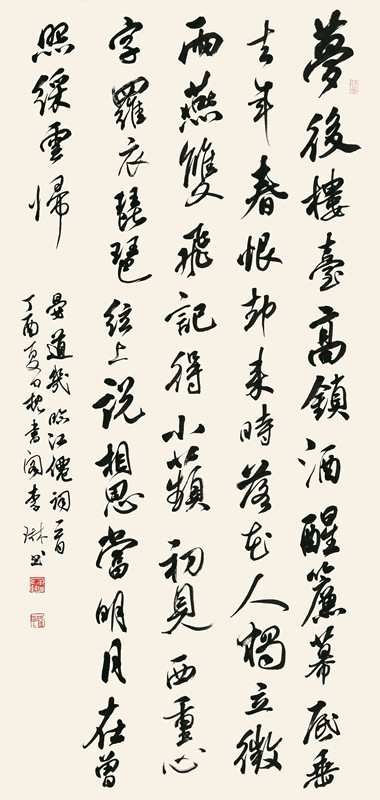 夢後樓臺高鎮酒醒簾幕底垂
去年春恨却来時落花人獨立微
雨燕雙飛記得小蘋初見兩重心
字羅衣琵琶絃上說相思當明月在曾
照綵雲歸
晏道幾臨江僊詞一首
丁酉夏日枕書閣李琳书